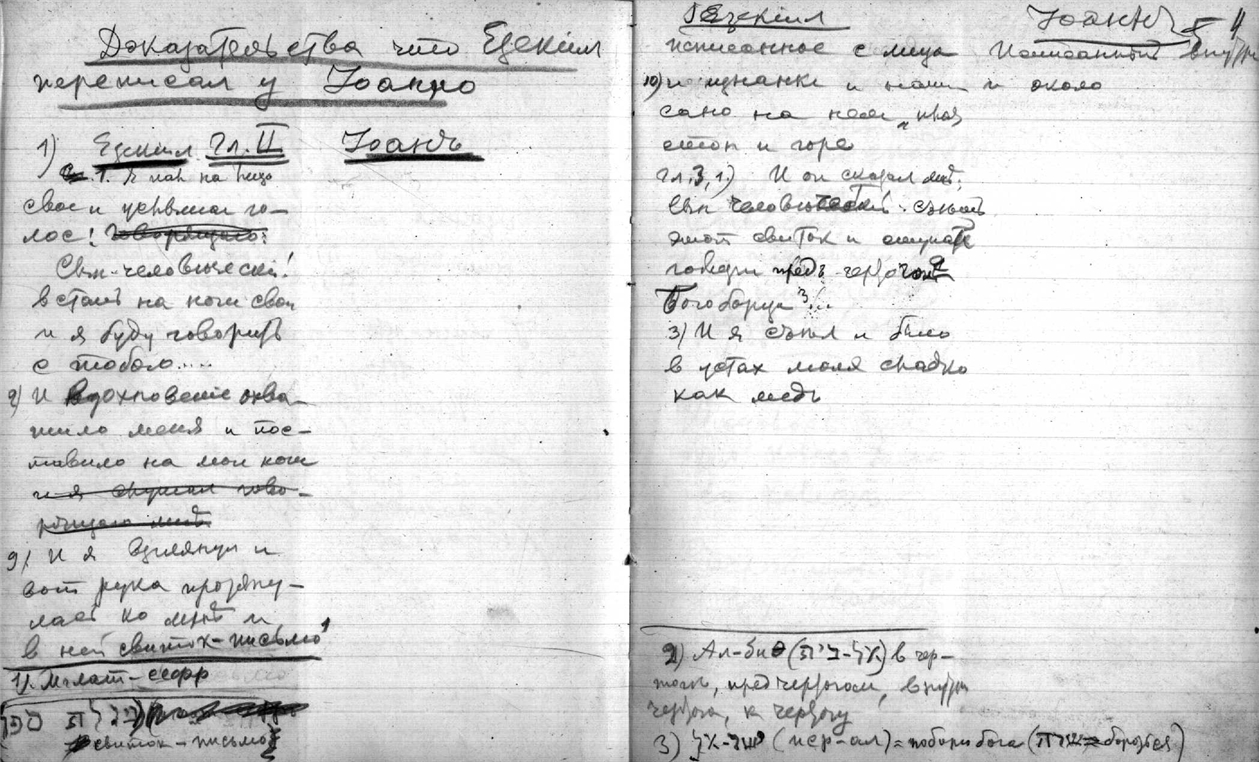 Доказательства что Езекіил
переписал у Іоанна
1) Езекіил Гл. II Іоаннъ
1. Я пал на лицо
свое и услышал го-
лос! говорящаго:
Сын-человѣческій!
встань на ноги свои
и я буду говорить
с тобою.....
2) И вдохновеніе охва-
тило меня и пос-
тавило на мои ноги
и я слушал гово-
рящаго мнѣ
9) И я взглянул и
вот рука протяну-
лась ко мнѣ и
в ней свиток-письмо¹
1). Мглат-сефр
מגלת ספר
свиток-письмо
Езекіил Іоаннъ 5 4
исписанное с лица Исписанный внутри
10) и изнанки и около
сано на нем
стон и горе
гл. 3, 1) И он сказал мнѣ:
Сын человѣческій съѣшь
этот свиток и ступай
говори предъ чертогом²
Богоборца ³
3) И я съѣл и было
в устах моих сладко
как медъ
2) Ал-бит (אל-בית) в чер-
тогѣ, пред чертогом, внутри
чертога, к чертогу
3) ישר-אל (иср-ал) = побори бога (שרית = борояся)